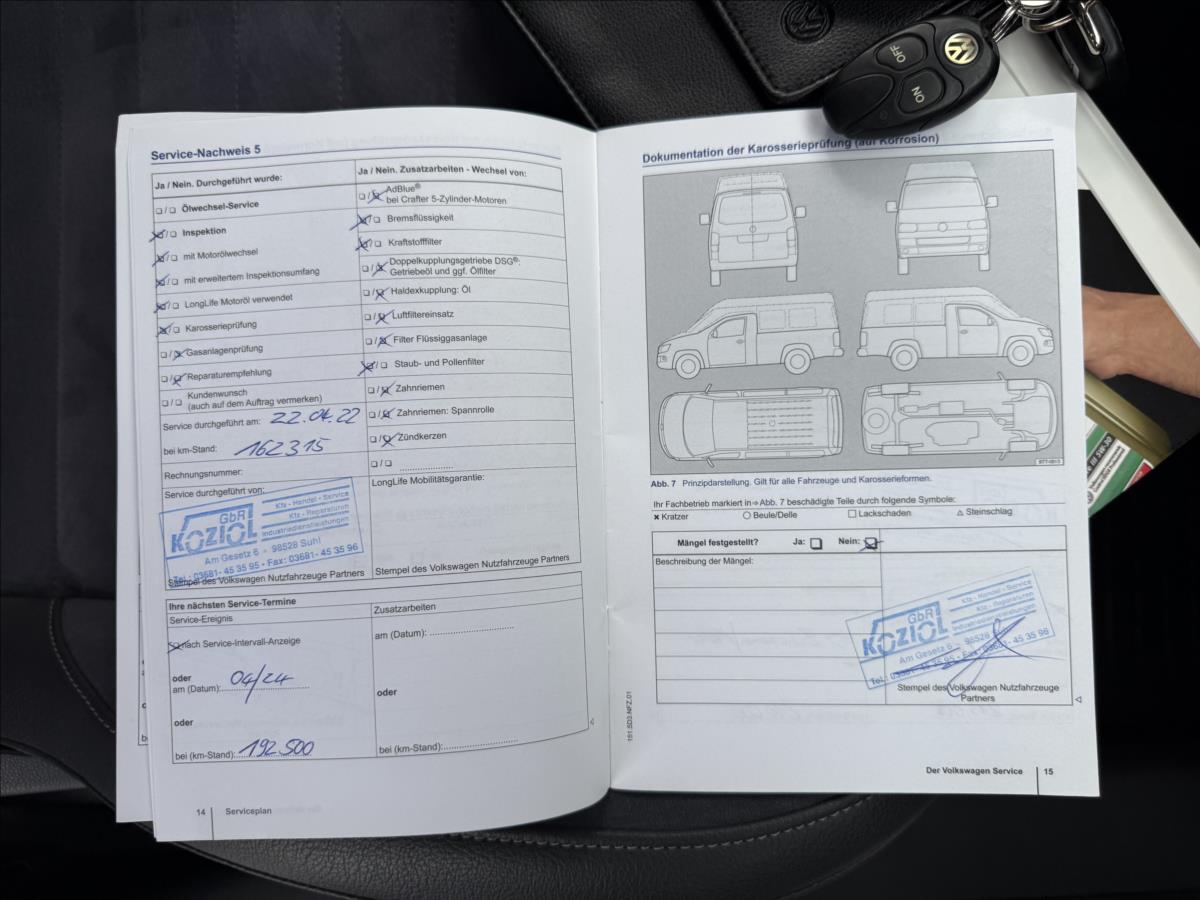 OFF
ON
Service-Nachweis 5
Ja / Nein. Durchgeführt wurde:
Ölwechsel-Service
Inspektion
mit Motorölwechsel
mit erweitertem Inspektionsumfang
LongLife Motoröl verwendet
Karosserieprüfung
Gasanlagenprüfung
Reparaturempfehlung
Kundenwunsch
(auch auf dem Auftrag vermerken)
Service durchgeführt am: 22.04.22
bei km-Stand: 162315
Rechnungsnummer:
Service durchgeführt von:
GbR
KOZIOL
Kfz - Handel - Service
Kfz - Reparaturen
Industriedienstleistungen
Am Gesetz 6 • 98528 Suhl
Tel.: 03681- 45 35 95 • Fax: 03681- 45 35 96
Stempel des Volkswagen Nutzfahrzeuge Partners
Ja / Nein. Zusatzarbeiten - Wechsel von:
AdBlue®
bei Crafter 5-Zylinder-Motoren
Bremsflüssigkeit
Kraftstofffilter
Doppelkupplungsgetriebe DSG®:
Getriebeöl und ggf. Ölfilter
Haldexkupplung: Öl
Luftfiltereinsatz
Filter Flüssiggasanlage
Staub- und Pollenfilter
Zahnriemen
Zahnriemen: Spannrolle
Zündkerzen
LongLife Mobilitätsgarantie:
Stempel des Volkswagen Nutzfahrzeuge Partners
Ihre nächsten Service-Termine
Service-Ereignis
nach Service-Intervall-Anzeige
oder
am (Datum): 04/24
oder
bei (km-Stand): 192.500
Zusatzarbeiten
am (Datum):
oder
bei (km-Stand):
14 Serviceplan
Dokumentation der Karosserieprüfung (auf Korrosion)
Abb. 7 Prinzipdarstellung. Gilt für alle Fahrzeuge und Karosserieformen.
Ihr Fachbetrieb markiert in ⇒ Abb. 7 beschädigte Teile durch folgende Symbole:
× Kratzer ○ Beule/Delle □ Lackschaden △ Steinschlag
Mängel festgestellt? Ja: Nein:
Beschreibung der Mängel:
GbR
KOZIOL
Kfz - Handel - Service
Kfz - Reparaturen
Industriedienstleistungen
Am Gesetz 6 • 98528
Tel.: 03681- 45 35 95 • Fax: 03681- 45 35 96
Stempel des Volkswagen Nutzfahrzeuge
Partners
151.5D3.NFZ.01
Der Volkswagen Service 15